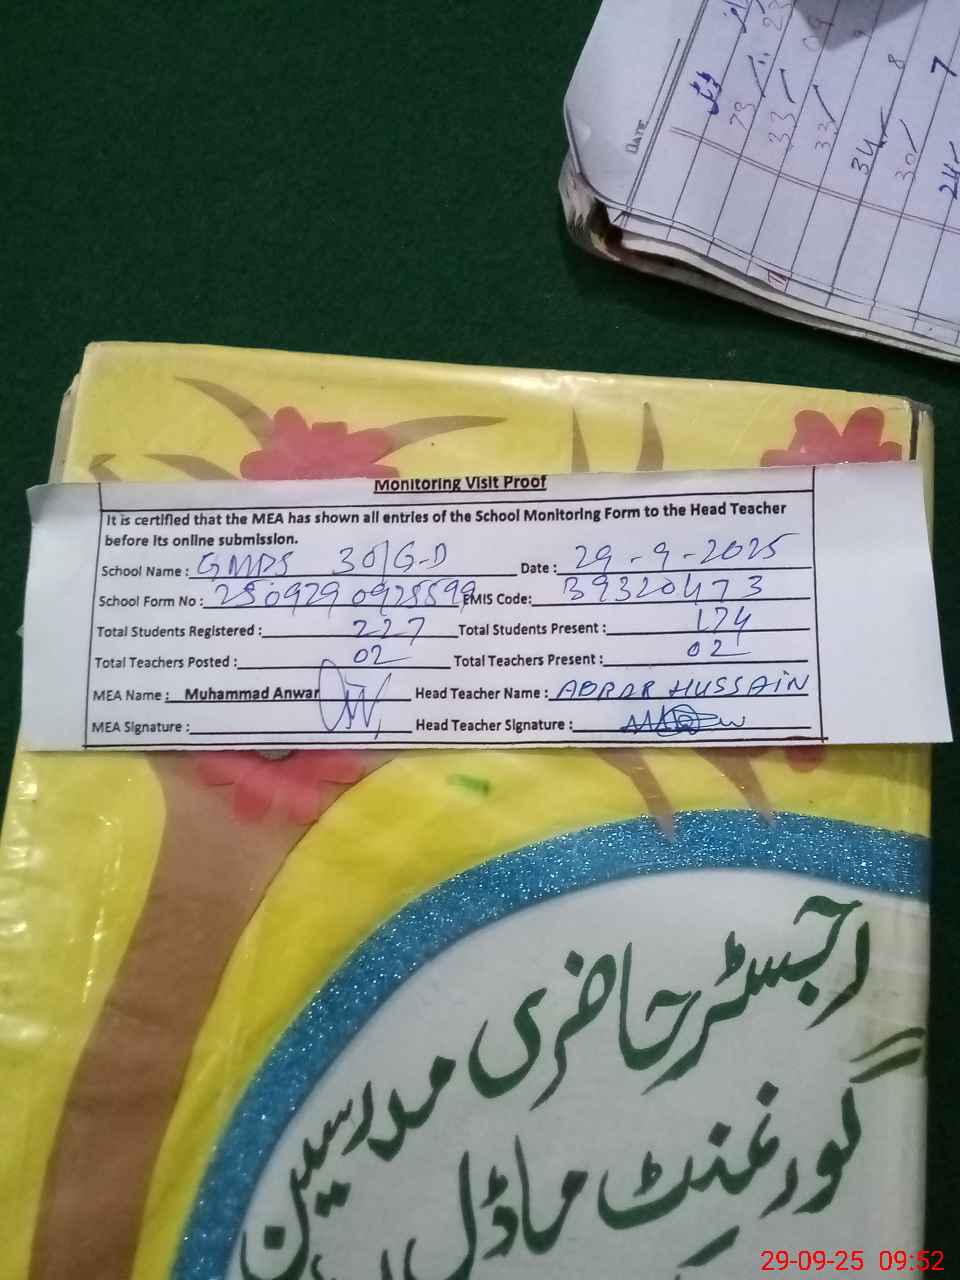 DATE
73
33
33
34
30
24
8
7
Monitoring Visit Proof
It is certified that the MEA has shown all entries of the School Monitoring Form to the Head Teacher
before its online submission.
School Name : GMPS 30/G-D Date : 29-9-2025
School Form No : 250929 0925599 EMIS Code: 39320473
Total Students Registered : 227 Total Students Present : 174
Total Teachers Posted : 02 Total Teachers Present : 02
MEA Name : Muhammad Anwar Head Teacher Name : ABRAR HUSSAIN
MEA Signature : Head Teacher Signature :
رجسٹر حاضری مدرسین
گورنمنٹ ماڈل
29-09-25 09:52